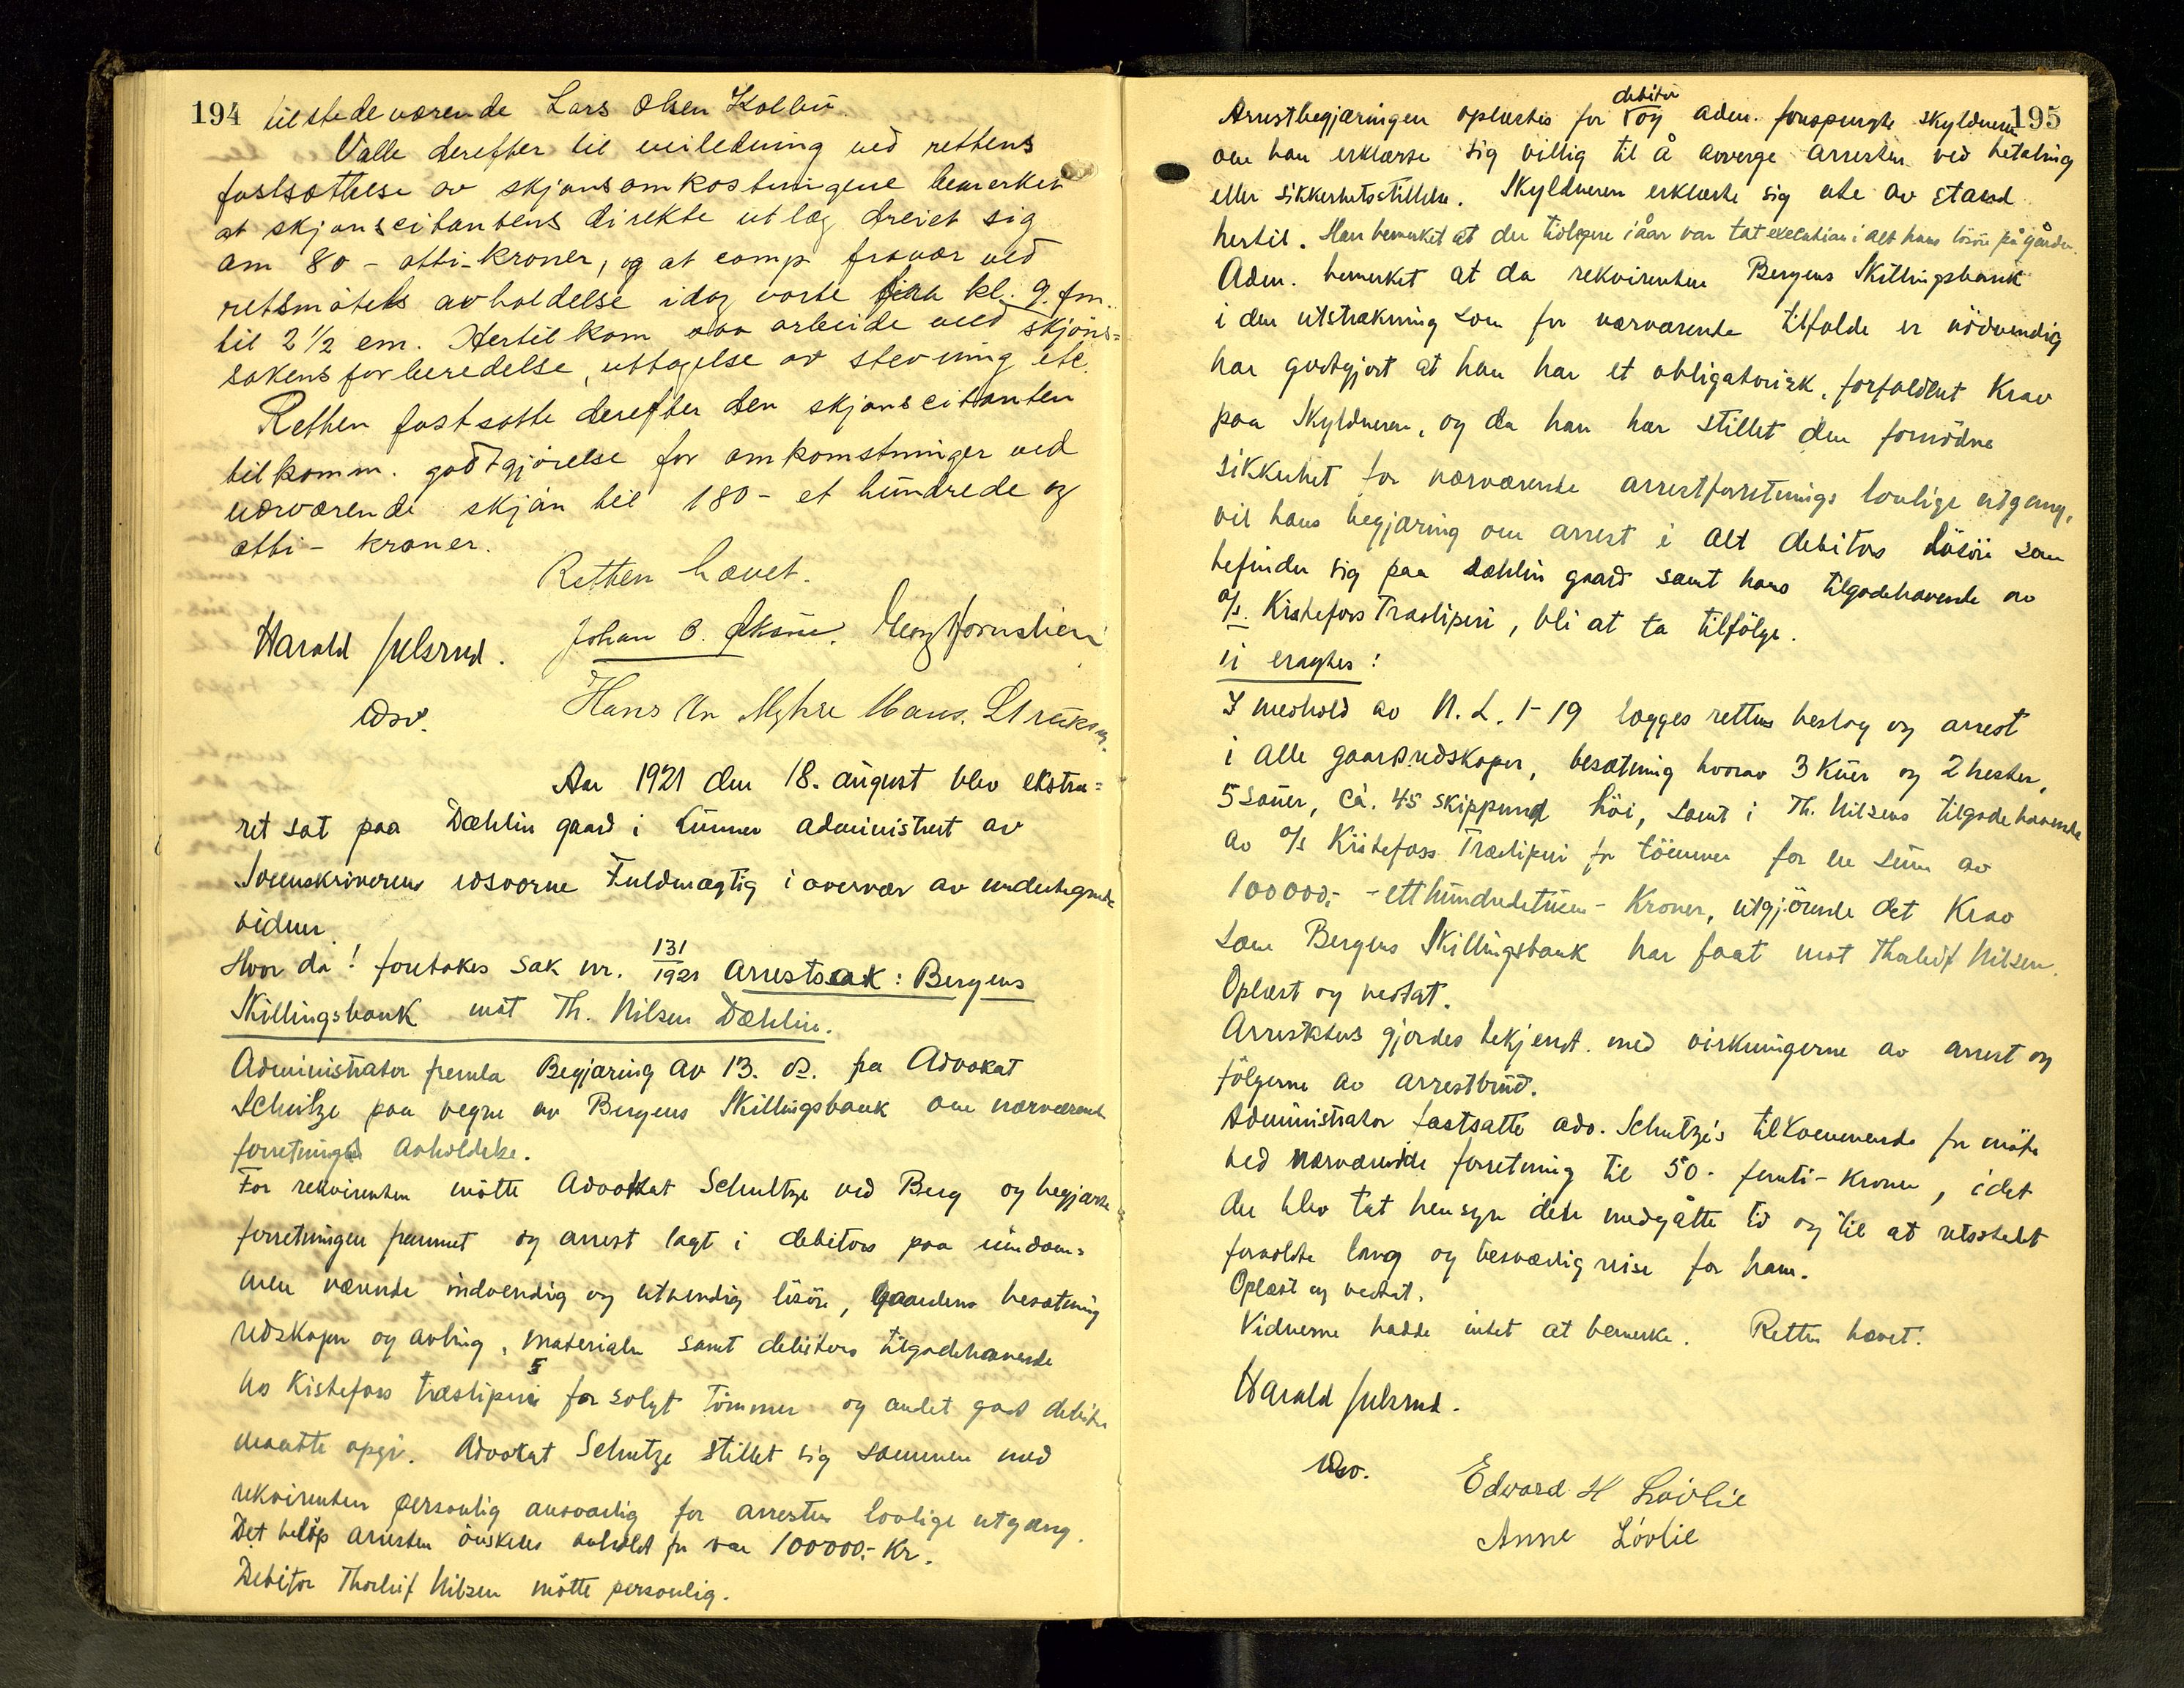 194
tilstedeværende Lars Olsen Kolbu.
Valle derefter til veiledning ved rettens
fastsættelse av skjønsomkostningene bemerket
at skjønscitantens direkte utlæg dreiet sig
om 80 - otti - kroner, og at comp. fravær ved
retsmøtets avholdelse idag varte fra kl. 9. fm.
til 2 1/2 em. Hertil kom arbeide med skjøns-
sakens forberedelse, uttagelse av stevning etc.
Retten fastsatte derefter den skjønscitanten
tilkomm. godtgjørelse for omkomstninger ved
nærværende skjøn til 180 - et hundrede og
otti - kroner.
Retten hævet.
Harald Julsrud. Johan B.
edsv. Hans
Aar 1921 den 18. august blev ekstra-
ret sat paa Dæhlin gaard i Lunner administrert av
Sorenskriverens edsvorne Fuldmægtig i overvær av undertegnede
vidner.
Hvor da! foretokes sak nr. 131/1921 Arrestsak: Bergens
Skillingsbank mot Th. Nilsen Dæhlin.
Administrator fremla Begjæring av 13. ds. fra Advokat
Schultze paa vegne av Bergens Skillingsbank om nærværende
forretnings avholdelse.
For rekvirenten møtte Advokat Schultze ved Berg og begjærte
forretningen fremmet og arrest lagt i debitors paa eiendom-
men værende indvendig og utvendig løsøre, gaardens besætning
redskaper og avling, materialer samt debitors tilgodehavende
hos Kistefoss træsliperi for solgt tømmer og andet gods debitor
maatte opgi. Advokat Schutze stillet sig sammen med
rekvirenten personlig ansvarlig for arrestens lovlige utgang.
Det beløp arresten ønskedes avholdt for var 100000,- Kr.
Debitor Thorleif Nilsen møtte personlig.
195
Arrestbegjæringen oplæstes for debitor og adm. forespurgte skyldneren
om han erklærte sig villig til å avverge arresten ved betaling
eller sikkerhetsstillelse. Skyldneren erklærte sig ute av stand
hertil. Han bemerket at der tidligere i åar var tat execution i alt hans løsöre på gården.
Adm. bemerket at da rekvirenten Bergens Skillingsbank
i den utstrækning som for nærværende tilfælde er nödvendig
har godtgjort at han har et obligatorisk, forfaldent Krav
paa Skyldneren, og da han har stillet den fornødne
sikkerhet for nærværende arrestforretnings lovlige utgang,
vil hans begjæring om arrest i alt debitors løsöre som
befinder sig paa Dæhlin gaard samt hans tilgodehavende av
a/s. Kistefoss Træsliperi, bli at ta tilfølge.
ti eragtes:
I medhold av N. L. 1-19 lægges rettens beslag og arrest
i alle gaardsredskaper, besætning hvorav 3 Kuer og 2 hester,
5 sauer, ca. 45 skippund höi, samt i Th. Nilsens tilgodehavende
av a/s Kistefoss Træsliperi for tömmer for en sum av
100000,- - etthundredetusen - Kroner, utgjörende det Krav
som Bergens Skillingsbank har faat mot Thorleif Nilsen.
Oplæst og vedtat.
Arrestatus gjordes bekjendt med virkningerne av arrest og
følgerne av arrestbrud.
Administrator fastsatte adv. Schutze's tilkommende for møte
ved nærværende forretning til 50 - femti - Kroner, idet
der blev tat hensyn medgåtte tid og til at retsstedet
forvoldte lang og besværlig reise for ham.
Oplæst og vedtat.
Vidnerne hadde intet at bemerke. Retten hævet.
Harald Julsrud.
edsv.
Edvard H Lövlie
Anne Lövlie